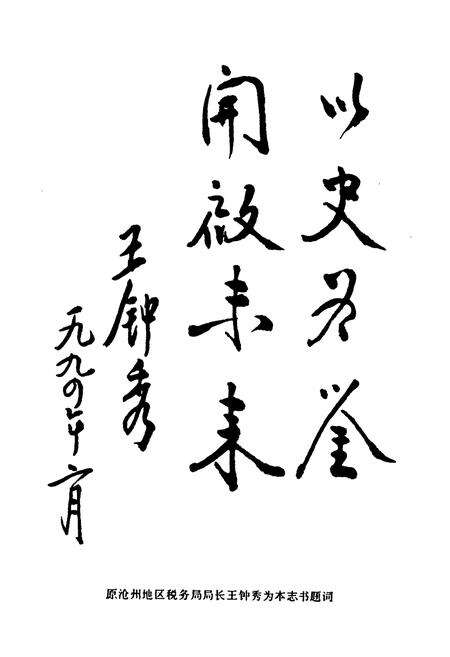 以史为鉴
開啟未来
王钟秀
一九九四年六月
原沧州地区税务局局长王钟秀为本志书题词